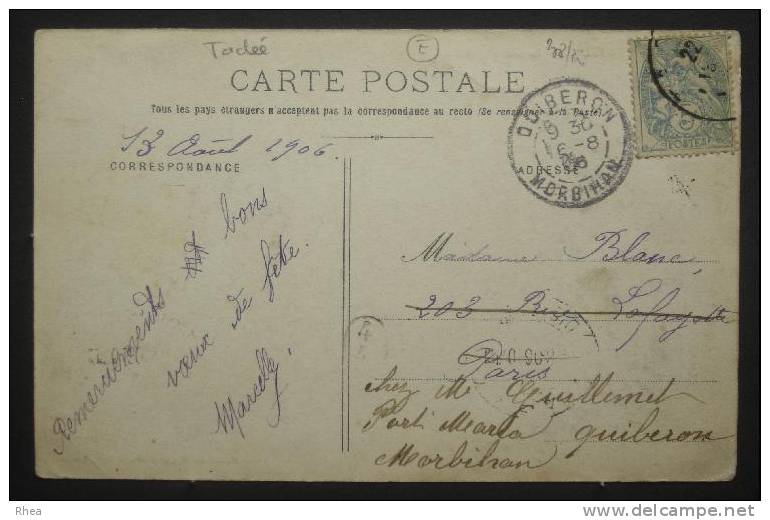 Tadée
E
CARTE POSTALE
Tous les pays étrangers n'acceptent pas la correspondance au recto (Se renseigner à la Poste)
13 Août 1906.
CORRESPONDANCE
ADRESSE
QUIBERON
MORBIHAN
POSTES
22
Remerciements bons
vœux de fête.
Marcelle,
Madame Blanc,
203 Rue Lafayette
Paris
chez Mr Guillemet
Port Maria quiberon
Morbihan
Rhea
www.delcampe.net